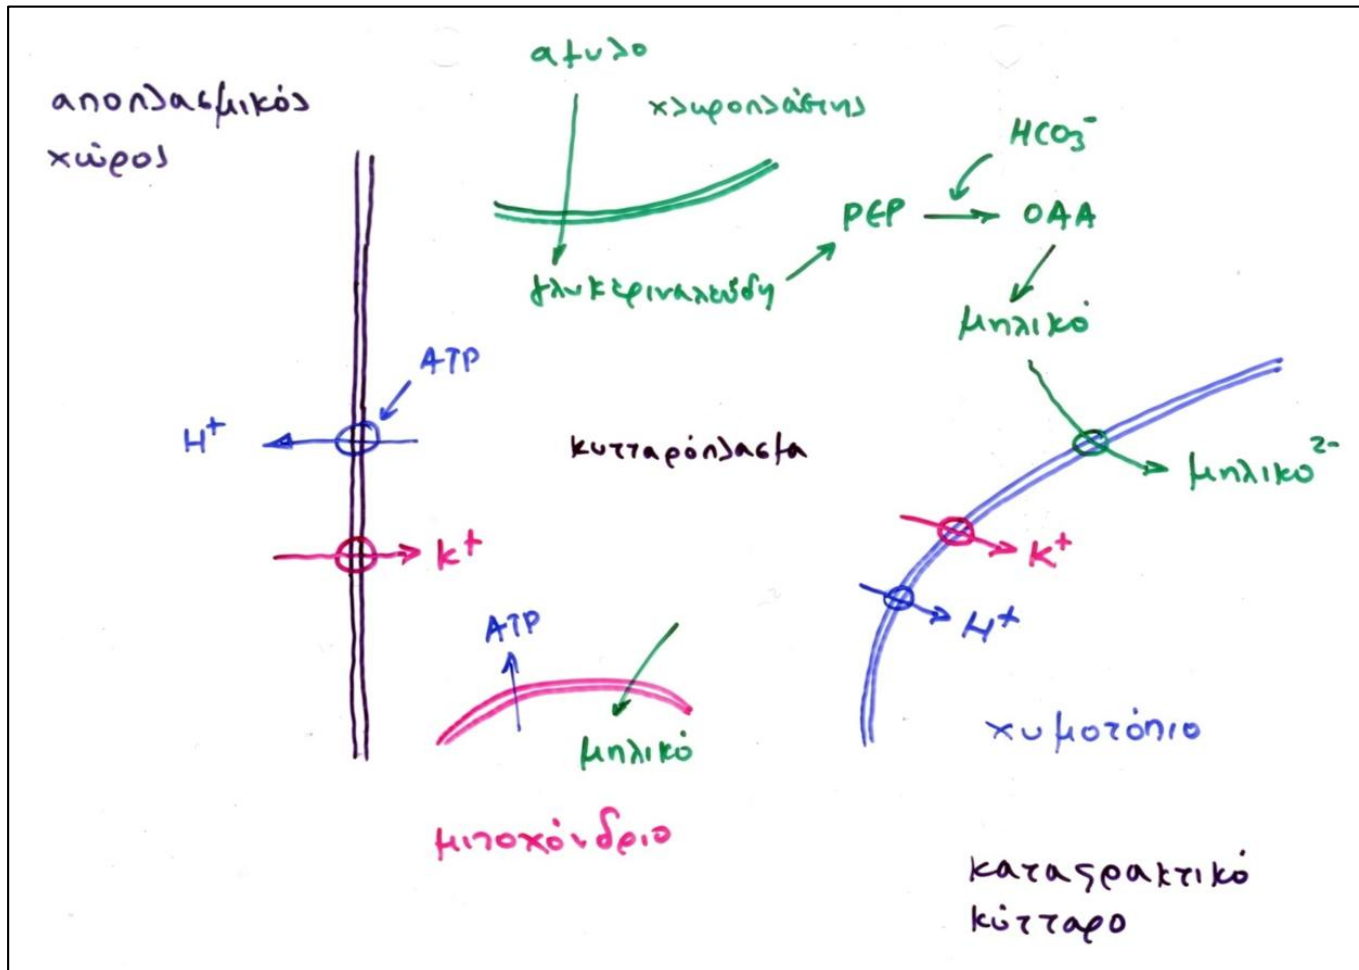 αποπλασμικός
χώρος
αμυλο
χλωροπλάστης
HCO₃⁻
PEP
OAA
γλυκεριναλδεΰδη
μηλικό
ATP
H⁺
κυτταρόπλασμα
μηλικο²⁻
K⁺
K⁺
H⁺
ATP
μηλικό
χυμοτόπιο
μιτοχόνδριο
καταφρακτικό
κύτταρο